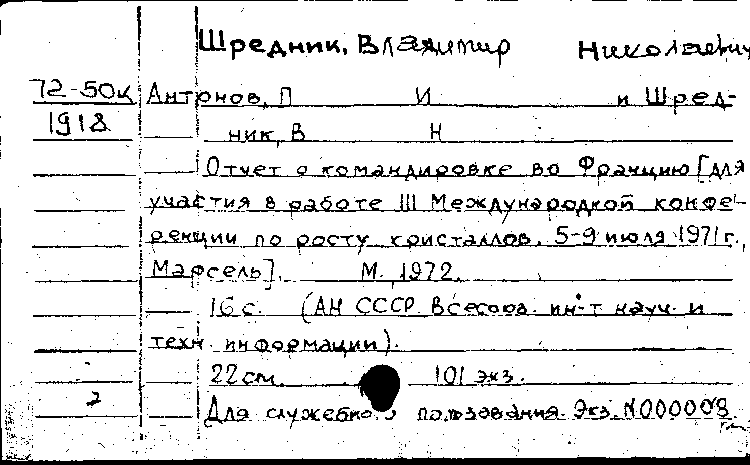 Шредник, Владимир Николаевич
72-50к Антонов, П И и Шред-
1918 ник, В Н
Отчет о командировке во Францию [для
участия в работе III Международной конфе-
ренции по росту кристаллов, 5-9 июля 1971 г.,
Марсель]. М. 1972.
16 с. (АН СССР Всесоюз. ин-т науч. и
техн. информации).
22 см. 101 экз.
2 Для служебно пользования. Экз. N000008.